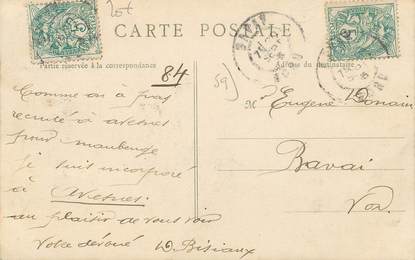 20€
CARTE POSTALE
Partie réservée à la correspondance
Adresse du destinataire
84
59
Comme on a pas
recruté à avesnes
pour maubeuge
je suis incorporé
à Avesnes
au plaisir de vous voir
Votre dévoué D Bisiaux
M Eugène Donain
Bavai
Nord
BAVAI
NORD